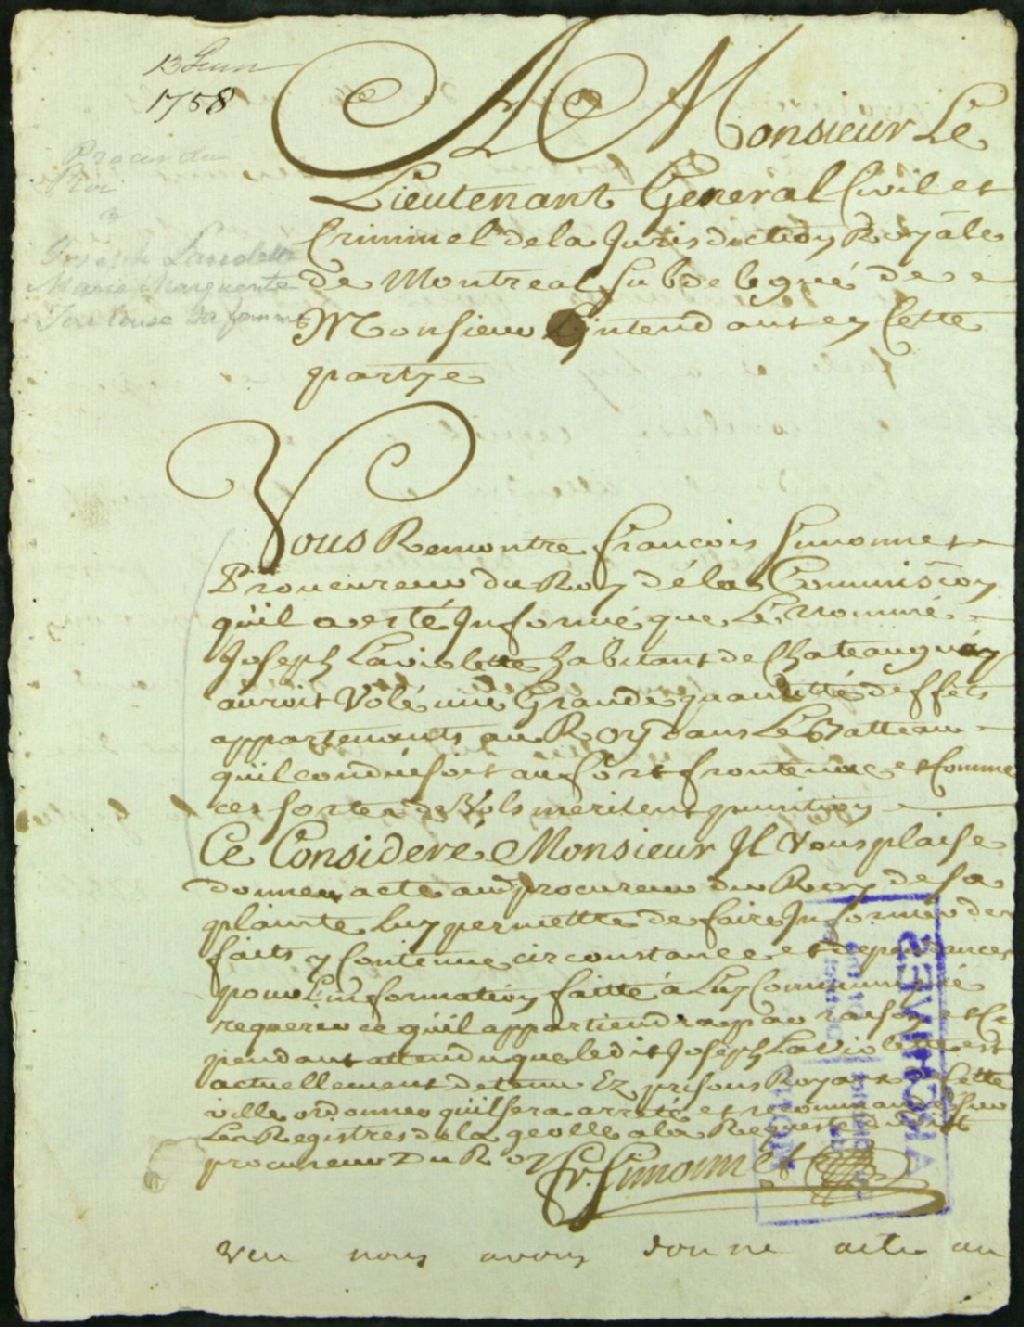 13 Juin
1758
Procureur du
Roi
&
Joseph Laviolette
Marie Marguerite
Toulouse sa femme
A Monsieur Le
Lieutenant General Civil et
Criminel de la Jurisdiction Royale
de Montreal Subdelegué de
Monsieur L'intendant en Cette
partye
Vous Remontre François Simonnet
Procureur du Roy dé la Commission
qu'il a esté Informé que Le nommé
Joseph Laviolette habitant de Chateauguay
auroit Volé une Grande quantitté d'effets
appartenants au Roy dans Le Batteau
quil conduisoit au fort frontenac et Comme
ces sortes de Vols meritent punition
Ce Consideré Monsieur Il Vous plaise
donner acte au procureur du Roy de sa
plainte Luy permettre de faire Informer des
faits y Contenue circonstance et dependances
pour L'information faitte à Luy Communiqué
requerir ce qu'il appartiendra par raison et Ce
pendant attendu que ledit Joseph Laviolette est
actuellement detenu Ez prisons Royaux de Cette
ville ordonner qu'il sera arreté et recommandé sur
Les Registres de la geolle a la Requeste dudit
procureur Du Roy Fr. Simonnet
Veu nous avons donné acte au
ARCHIVES